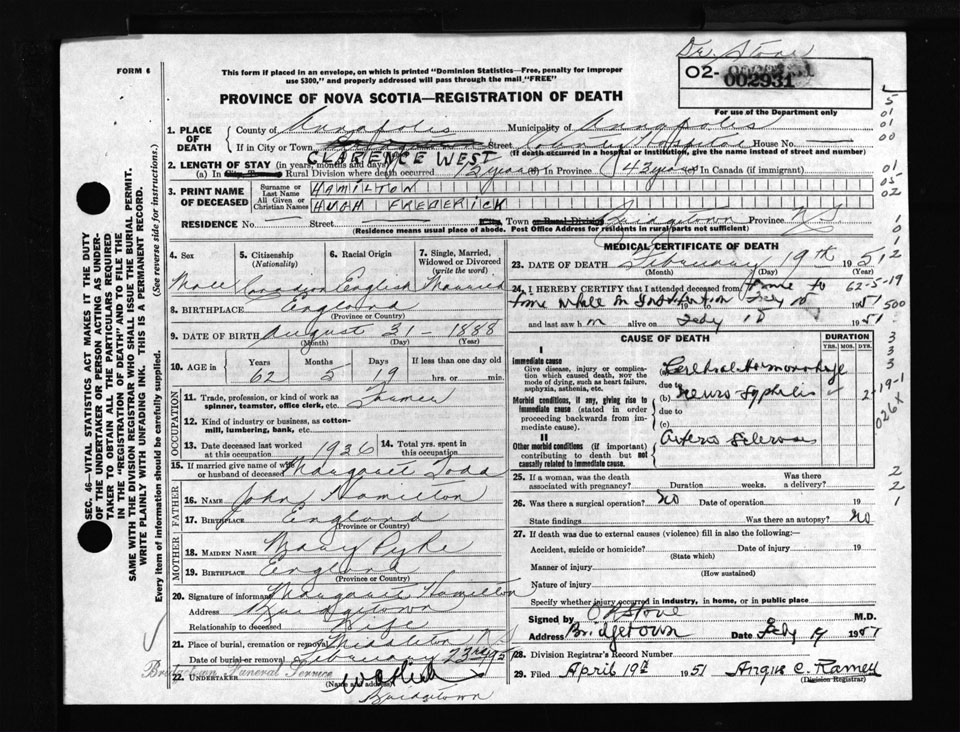 Dr. Stone
FORM 6
This form if placed in an envelope, on which is printed "Dominion Statistics—Free, penalty for improper
use $300," and properly addressed will pass through the mail "FREE"
PROVINCE OF NOVA SCOTIA—REGISTRATION OF DEATH
02- 002931
For use of the Department only
1. PLACE OF DEATH
County of Annapolis Municipality of Annapolis
If in City or Town Street County Hospital House No.
(If death occurred in a hospital or institution, give the name instead of street and number)
CLARENCE WEST
2. LENGTH OF STAY (in years, months and days)
(a) In City, Town or Rural Division where death occurred 12 years (b) In Province 43 years In Canada (if immigrant)
3. PRINT NAME OF DECEASED
Surname or Last Name HAMILTON
All Given or Christian Names HUGH FREDERICK
RESIDENCE No. Street City, Town or Rural Division Bridgetown Province N.S.
(Residence means usual place of abode. Post Office Address for residents in rural parts not sufficient)
4. Sex Male
5. Citizenship (Nationality) Canadian
6. Racial Origin English
7. Single, Married, Widowed or Divorced (write the word) Married
8. BIRTHPLACE England
(Province or Country)
9. DATE OF BIRTH August 31 - 1888
(Month) (Day) (Year)
10. AGE in Years 62 Months 5 Days 19 If less than one day hrs. or min.
OCCUPATION
11. Trade, profession, or kind of work as spinner, teamster, office clerk, etc. Farmer
12. Kind of industry or business, as cotton-mill, lumbering, bank, etc.
13. Date deceased last worked at this occupation 1926
14. Total yrs. spent in this occupation
15. If married give name of wife or husband of deceased Margaret Todd
FATHER
16. NAME John Hamilton
17. BIRTHPLACE England
(Province or Country)
MOTHER
18. MAIDEN NAME Mary Pyke
19. BIRTHPLACE England
(Province or Country)
20. Signature of informant Margaret Hamilton
Address Bridgetown
Relationship to deceased Wife
21. Place of burial, cremation or removal Middleton N.S.
Date of burial or removal February 23rd 195
22. UNDERTAKER
(Name and address)
Bridgetown Funeral Service
Bridgetown
MEDICAL CERTIFICATE OF DEATH
23. DATE OF DEATH February 19th 1951
(Month) (Day) (Year)
24. I HEREBY CERTIFY that I attended deceased from time to
time while in Institution to Feby 18 1951
and last saw him alive on Feby 18 1951
CAUSE OF DEATH
DURATION
YRS. MOS. DYS.
I
Immediate cause
Give disease, injury or complication which caused death, not the mode of dying, such as heart failure, asphyxia, asthenia, etc.
(a) Cerebral Hemorrhage
due to
Morbid conditions, if any, giving rise to immediate cause (stated in order proceeding backwards from immediate cause).
(b) Neuro Syphilis
due to
(c)
II
Other morbid conditions (if important) contributing to death but not causally related to immediate cause.
Arterio Sclerosis
25. If a woman, was the death associated with pregnancy? Duration weeks. Was there a delivery?
26. Was there a surgical operation? No Date of operation 19
State findings Was there an autopsy? No
27. If death was due to external causes (violence) fill in also the following:
Accident, suicide or homicide? Date of injury 19
(State which)
Manner of injury
(How sustained)
Nature of injury
Specify whether injury occurred in industry, in home, or in public place
Signed by M.D.
Address Bridgetown Date Feby 19 1951
28. Division Registrar's Record Number
29. Filed April 19th 1951 Angus C. Ramey
(Division Registrar)
SEC. 46—VITAL STATISTICS ACT MAKES IT THE DUTY
OF THE UNDERTAKER OR PERSON ACTING AS UNDER-
TAKER TO OBTAIN ALL THE PARTICULARS REQUIRED
IN THE "REGISTRATION OF DEATH" AND TO FILE THE
SAME WITH THE DIVISION REGISTRAR WHO SHALL ISSUE THE BURIAL PERMIT.
WRITE PLAINLY WITH UNFADING INK. THIS IS A PERMANENT RECORD.
Every item of information should be carefully supplied. (See reverse side for instructions.)
5
01
00
01
05
02
1
0
1
2
62-5-19
500
3
3
3
2-19-1
026X
2
2
1